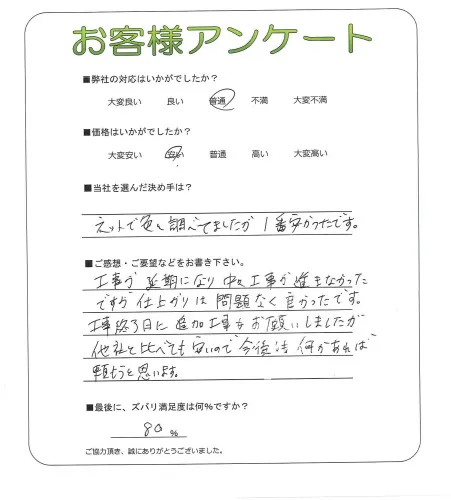 お客様アンケート
■弊社の対応はいかがでしたか？
大変良い 良い 普通 不満 大変不満
■価格はいかがでしたか？
大変安い 安い 普通 高い 大変高い
■当社を選んだ決め手は？
ネットで色々調べてましたが 1番安かったです。
■ご感想・ご要望などをお書き下さい。
工事が延期になり中々工事が進まなかった
ですが仕上がりは問題なく良かったです。
工事終了日に追加工事もお願いしましたが
他社と比べても安いので今後は何かあれば
頼もうと思います。
■最後に、ズバリ満足度は何%ですか？
80 %
ご協力頂き、誠にありがとうございました。